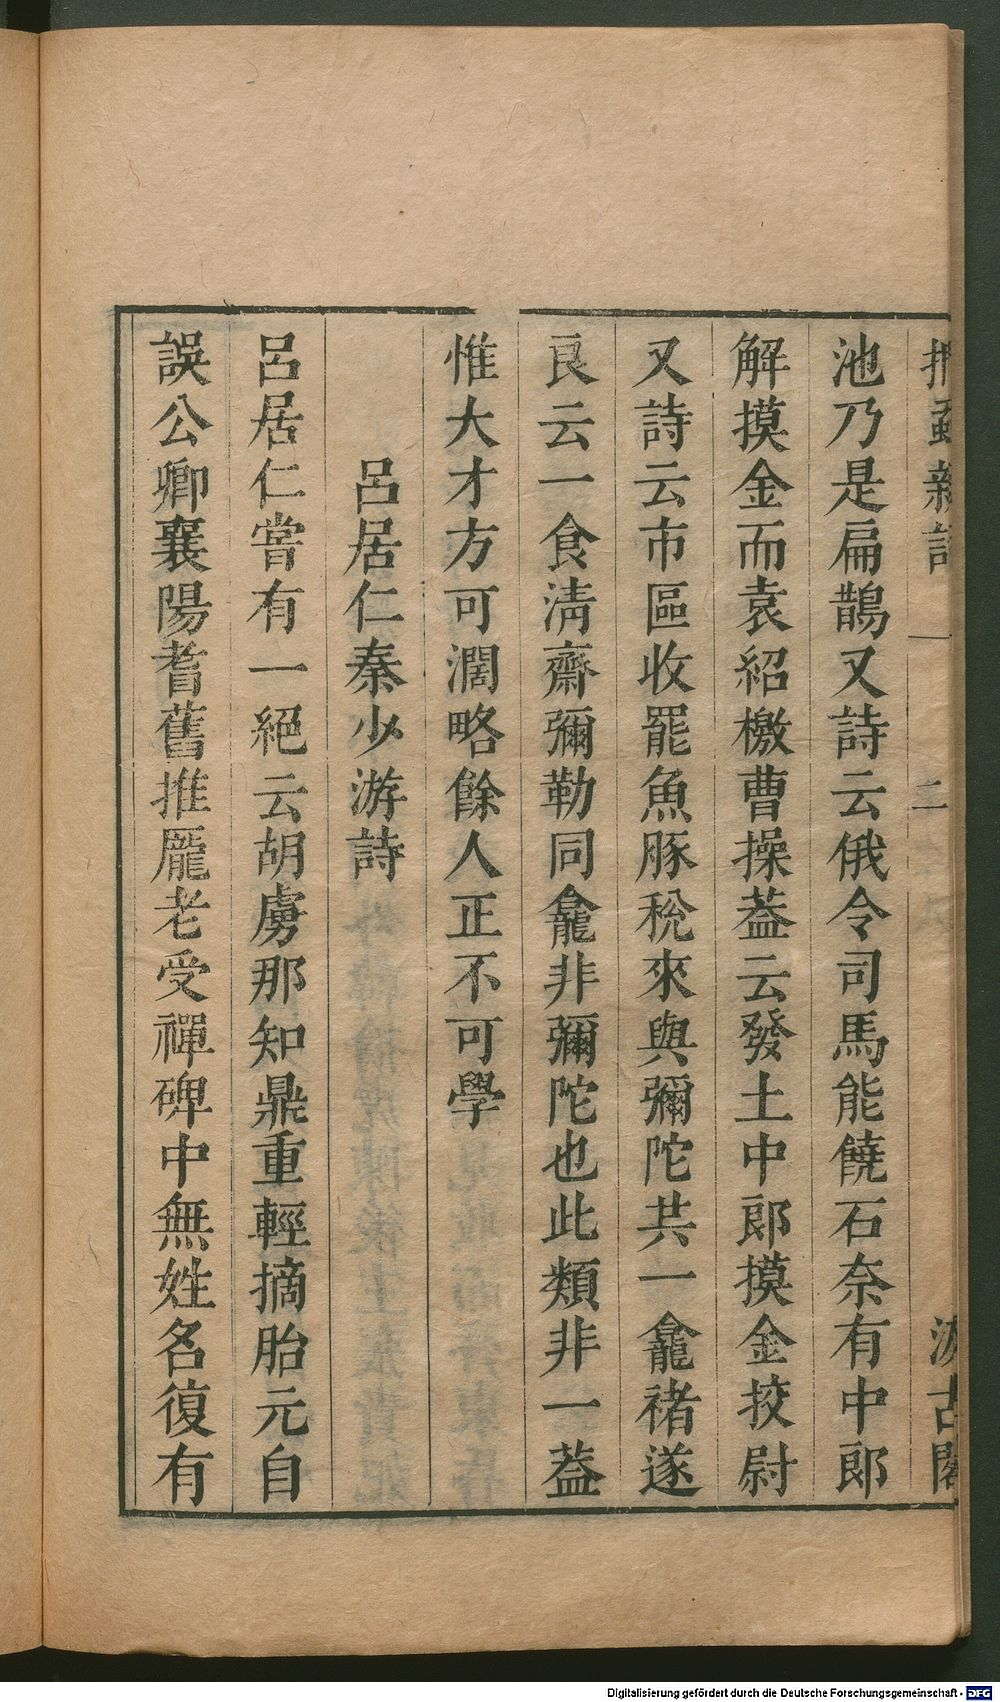 捫蝨新話 一 二 汲古閣
池乃是扁鵲又詩云俄令司馬能饒石奈有中郎
解摸金而袁紹檄曹操葢云發土中郎摸金挍尉
又詩云市區收罷魚豚稅來與彌陀共一龕禇遂
良云一食淸齋彌勒同龕非彌陀也此類非一葢
惟大才方可濶略餘人正不可學
呂居仁秦少游詩
呂居仁嘗有一絕云胡虜那知鼎重輕摘胎元自
誤公卿襄陽耆舊推龐老受禪碑中無姓名復有
Digitalisierung gefördert durch die Deutsche Forschungsgemeinschaft - DFG